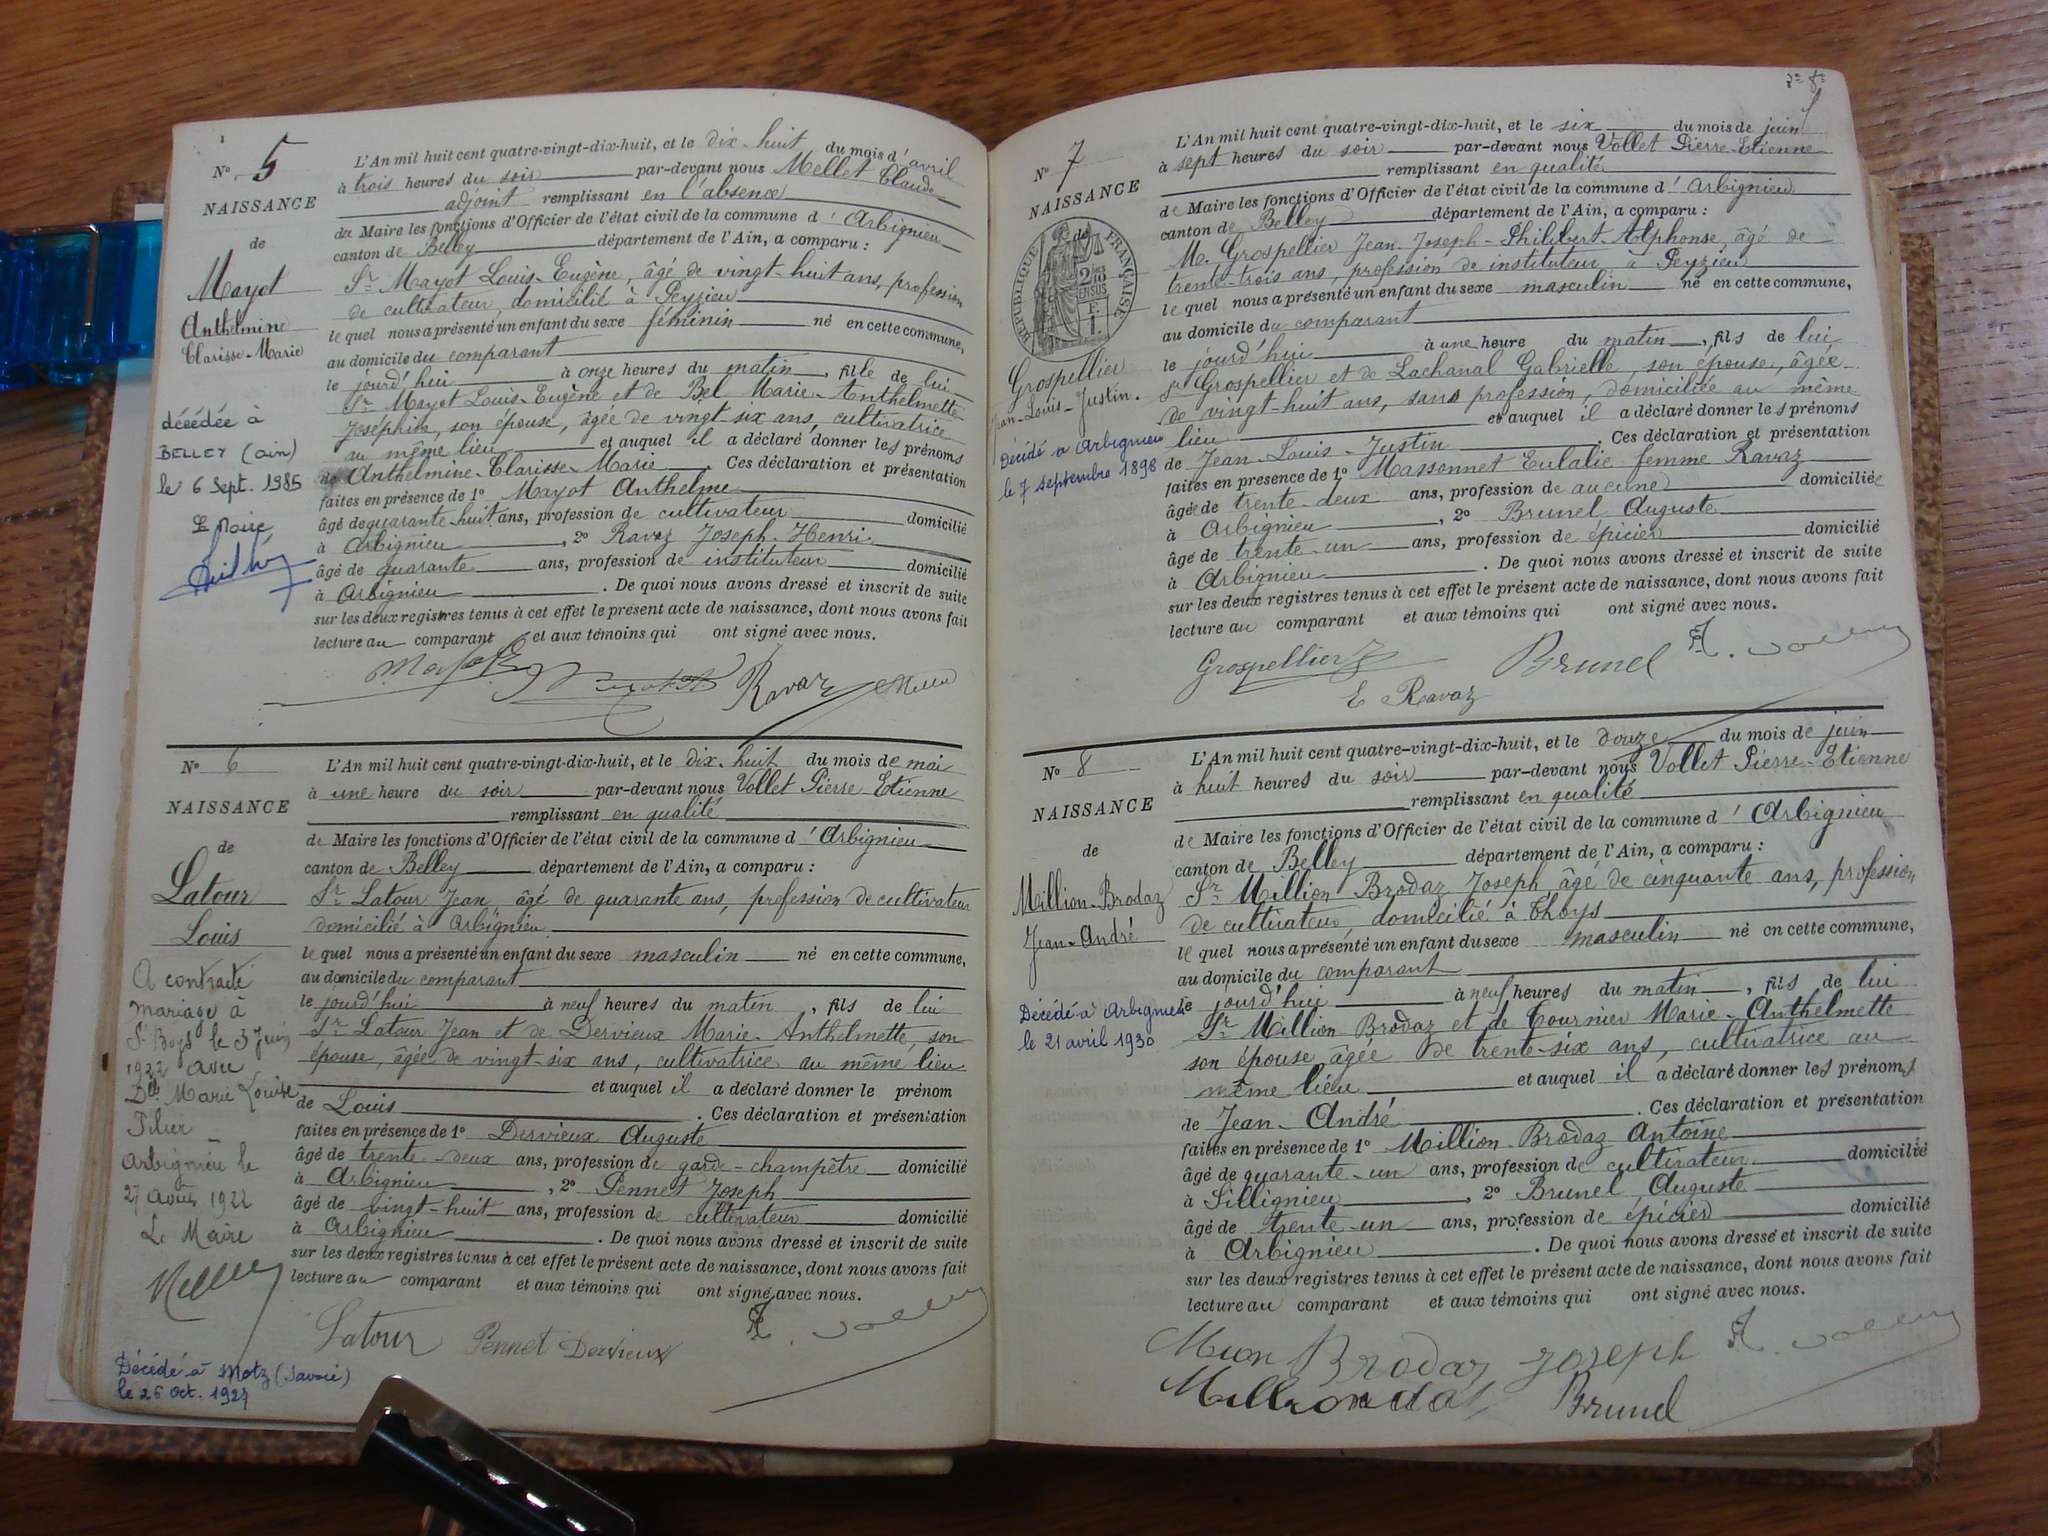 N° 5
NAISSANCE
de
Mayot
Anthelmine
Clarisse-Marie
décédée à
BELLEY (ain)
le 6 Sept. 1985
Le Maire
L'An mil huit cent quatre-vingt-dix-huit, et le dix-huit du mois d'avril
à trois heures du soir par-devant nous Mellet Claude
adjoint remplissant en l'absence
du Maire les fonctions d'Officier de l'état civil de la commune d'Arbignieu
canton de Belley département de l'Ain, a comparu :
Sr Mayot Louis-Eugène, âgé de vingt-huit ans, profession
de cultivateur, domicilié à Peyzieu
lequel nous a présenté un enfant du sexe féminin né en cette commune,
au domicile du comparant
le jourd'hui à onze heures du matin, fille de lui
Sr Mayot Louis-Eugène et de Bel Marie-Anthelmette
Joséphin, son épouse, âgée de vingt-six ans, cultivatrice
au même lieu et auquel il a déclaré donner les prénoms
de Anthelmine-Clarisse-Marie. Ces déclaration et présentation
faites en présence de 1° Mayot Anthelme
âgé de quarante-huit ans, profession de cultivateur domicilié
à Arbignieu, 2° Ravaz Joseph-Henri
âgé de quarante ans, profession de instituteur domicilié
à Arbignieu. De quoi nous avons dressé et inscrit de suite
sur les deux registres tenus à cet effet le présent acte de naissance, dont nous avons fait
lecture au comparant et aux témoins qui ont signé avec nous.
Mayot Ravaz Mellet
N° 6
NAISSANCE
de
Latour
Louis
A contracté
mariage à
St Boys le 3 Juin
1922 avec
Dlle Marie Louise
Arbignieu le
27 1922
Le Maire
Mellet
Décédé à Motz (Savoie)
le 26 oct. 1927
L'An mil huit cent quatre-vingt-dix-huit, et le dix-huit du mois de mai
à une heure du soir par-devant nous Vollet Pierre Etienne
remplissant en qualité
de Maire les fonctions d'Officier de l'état civil de la commune d'Arbignieu
canton de Belley département de l'Ain, a comparu :
Sr Latour Jean, âgé de quarante ans, profession de cultivateur
domicilié à Arbignieu
lequel nous a présenté un enfant du sexe masculin né en cette commune,
au domicile du comparant
le jourd'hui à neuf heures du matin, fils de lui
Sr Latour Jean et de Dervieux Marie-Anthelmette, son
épouse, âgée de vingt-six ans, cultivatrice au même lieu
et auquel il a déclaré donner le prénom
de Louis. Ces déclaration et présentation
faites en présence de 1° Dervieux Auguste
âgé de trente-deux ans, profession de garde-champêtre domicilié
à Arbignieu, 2° Pennet Joseph
âgé de vingt-huit ans, profession de cultivateur domicilié
à Arbignieu. De quoi nous avons dressé et inscrit de suite
sur les deux registres tenus à cet effet le présent acte de naissance, dont nous avons fait
lecture au comparant et aux témoins qui ont signé avec nous.
Latour Pennet Dervieux Vollet
N° 7
NAISSANCE
de
RÉPUBLIQUE FRANÇAISE
2/10 EN SUS
Grospellier
Jean-Louis-Justin.
Décédé à Arbignieu
le 7 septembre 1898
L'An mil huit cent quatre-vingt-dix-huit, et le six du mois de juin
à sept heures du soir par-devant nous Vollet Pierre-Etienne
remplissant en qualité
de Maire les fonctions d'Officier de l'état civil de la commune d'Arbignieu
canton de Belley département de l'Ain, a comparu :
M. Grospellier Jean-Joseph-Philibert-Alphonse, âgé de
trente-trois ans, profession de instituteur à Peyzieu
lequel nous a présenté un enfant du sexe masculin né en cette commune,
au domicile du comparant
le jourd'hui à une heure du matin, fils de lui
Sr Grospellier et de Lachanal Gabrielle, son épouse, âgée
de vingt-huit ans, sans profession, domiciliée au même
lieu et auquel il a déclaré donner les prénoms
de Jean-Louis-Justin. Ces déclaration et présentation
faites en présence de 1° Massonnet Eulalie femme Ravaz
âgée de trente-deux ans, profession de aucune domiciliée
à Arbignieu, 2° Brunel Auguste
âgé de trente-un ans, profession de épicier domicilié
à Arbignieu. De quoi nous avons dressé et inscrit de suite
sur les deux registres tenus à cet effet le présent acte de naissance, dont nous avons fait
lecture au comparant et aux témoins qui ont signé avec nous.
Grospellier Brunel Vollet
E Ravaz
N° 8
NAISSANCE
de
Million-Brodaz
Jean-André
Décédé à Arbignieu
le 21 avril 1930
L'An mil huit cent quatre-vingt-dix-huit, et le douze du mois de juin
à huit heures du soir par-devant nous Vollet Pierre-Etienne
remplissant en qualité
de Maire les fonctions d'Officier de l'état civil de la commune d'Arbignieu
canton de Belley département de l'Ain, a comparu :
Sr Million-Brodaz Joseph, âgé de cinquante ans, profession
de cultivateur domicilié à Thoys
lequel nous a présenté un enfant du sexe masculin né en cette commune,
au domicile du comparant
le jourd'hui à neuf heures du matin, fils de lui
Sr Million Brodaz et de Tournier Marie-Anthelmette
son épouse âgée de trente-six ans, cultivatrice au
même lieu et auquel il a déclaré donner les prénoms
de Jean-André. Ces déclaration et présentation
faites en présence de 1° Million-Brodaz Antoine
âgé de quarante-un ans, profession de cultivateur domicilié
à Sillignieu, 2° Brunel Auguste
âgé de trente-un ans, profession de épicier domicilié
à Arbignieu. De quoi nous avons dressé et inscrit de suite
sur les deux registres tenus à cet effet le présent acte de naissance, dont nous avons fait
lecture au comparant et aux témoins qui ont signé avec nous.
Mion Brodaz Joseph Vollet
Brunel